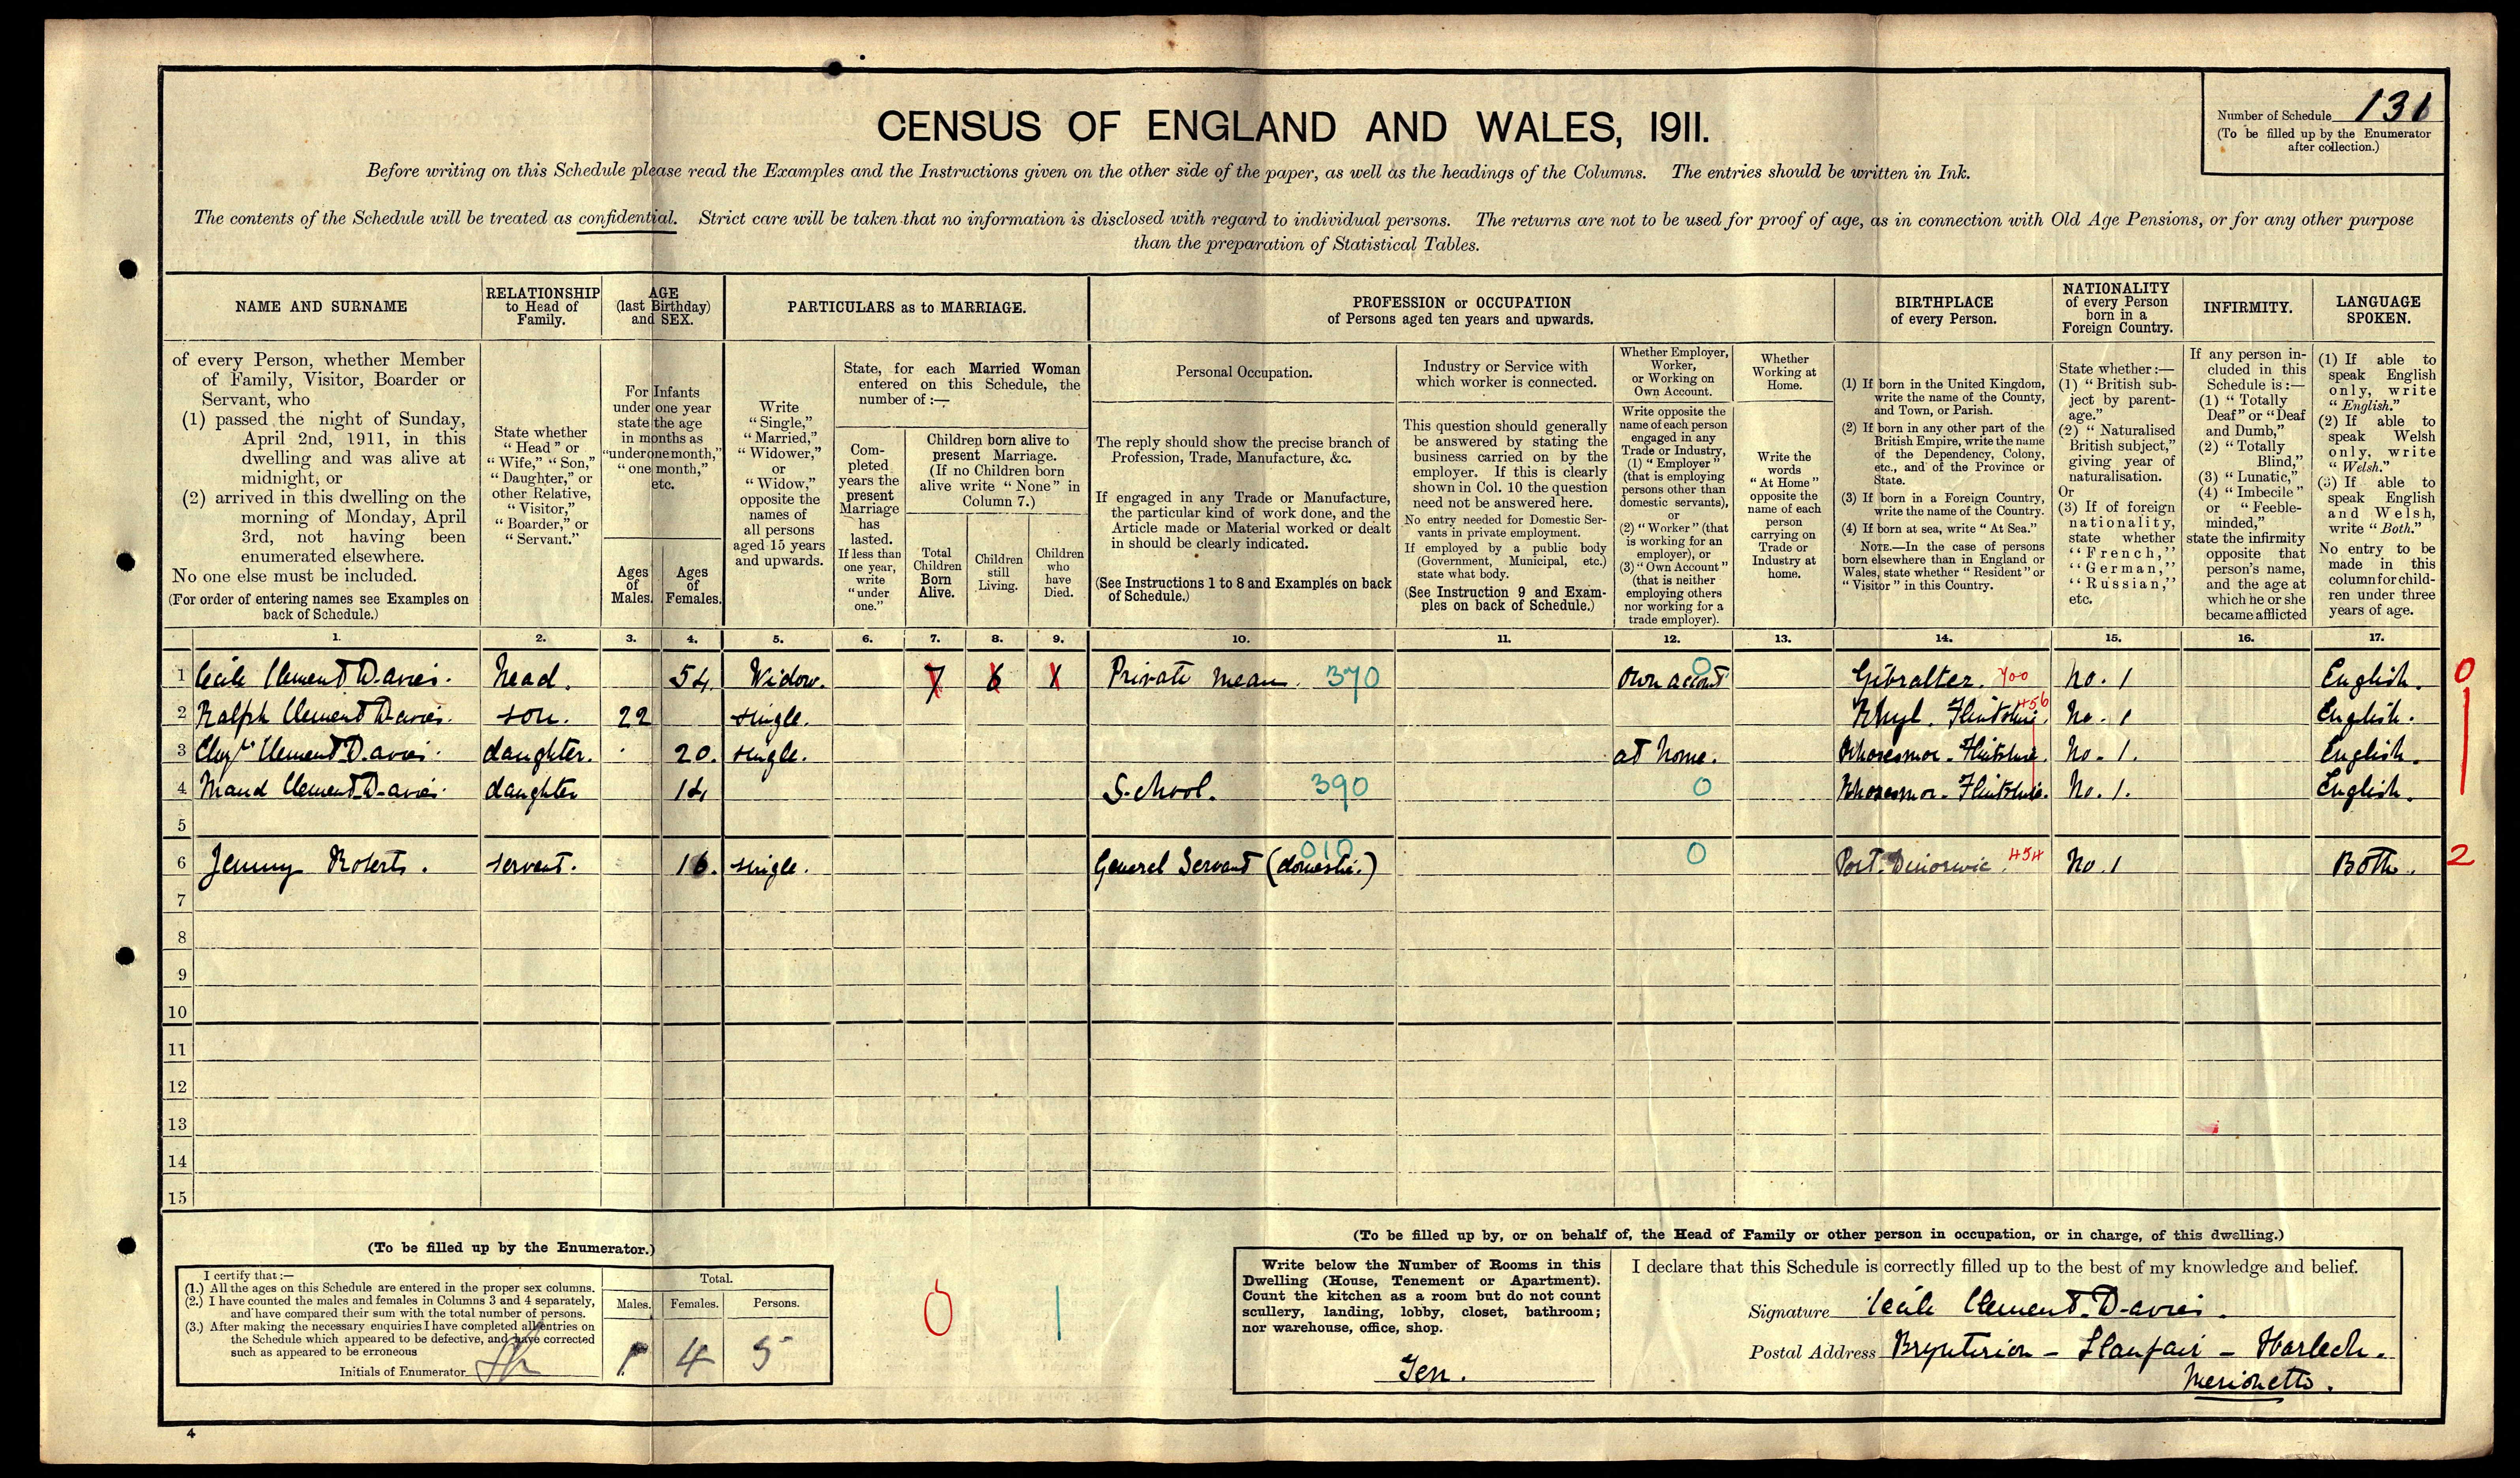 Number of Schedule 131
(To be filled up by the Enumerator
after collection.)
CENSUS OF ENGLAND AND WALES, 1911.
Before writing on this Schedule please read the Examples and the Instructions given on the other side of the paper, as well as the headings of the Columns. The entries should be written in Ink.
The contents of the Schedule will be treated as confidential. Strict care will be taken that no information is disclosed with regard to individual persons. The returns are not to be used for proof of age, as in connection with Old Age Pensions, or for any other purpose
than the preparation of Statistical Tables.
NAME AND SURNAME
of every Person, whether Member
of Family, Visitor, Boarder or
Servant, who
(1) passed the night of Sunday,
April 2nd, 1911, in this
dwelling and was alive at
midnight, or
(2) arrived in this dwelling on the
morning of Monday, April
3rd, not having been
enumerated elsewhere.
No one else must be included.
(For order of entering names see Examples on
back of Schedule.)
RELATIONSHIP
to Head of
Family.
State whether
"Head" or
"Wife," "Son,"
"Daughter," or
other Relative,
"Visitor,"
"Boarder," or
"Servant."
AGE
(last Birthday)
and SEX.
For Infants
under one year
state the age
in months as
"under one month,"
"one month,"
etc.
Ages
of
Males.
Ages
of
Females.
PARTICULARS as to MARRIAGE.
Write
"Single,"
"Married,"
"Widower,"
or
"Widow,"
opposite the
names of
all persons
aged 15 years
and upwards.
State, for each Married Woman
entered on this Schedule, the
number of :—
Com-
pleted
years the
present
Marriage
has
lasted.
If less than
one year,
write
"under
one."
Children born alive to
present Marriage.
(If no Children born
alive write "None" in
Column 7.)
Total
Children
Born
Alive.
Children
still
Living.
Children
who
have
Died.
PROFESSION or OCCUPATION
of Persons aged ten years and upwards.
Personal Occupation.
The reply should show the precise branch of
Profession, Trade, Manufacture, &c.
If engaged in any Trade or Manufacture,
the particular kind of work done, and the
Article made or Material worked or dealt
in should be clearly indicated.
(See Instructions 1 to 8 and Examples on back
of Schedule.)
Industry or Service with
which worker is connected.
This question should generally
be answered by stating the
business carried on by the
employer. If this is clearly
shown in Col. 10 the question
need not be answered here.
No entry needed for Domestic Ser-
vants in private employment.
If employed by a public body
(Government, Municipal, etc.)
state what body.
(See Instruction 9 and Exam-
ples on back of Schedule.)
Whether Employer,
Worker,
or Working on
Own Account.
Write opposite the
name of each person
engaged in any
Trade or Industry,
(1) "Employer"
(that is employing
persons other than
domestic servants),
or
(2) "Worker" (that
is working for an
employer), or
(3) "Own Account"
(that is neither
employing others
nor working for a
trade employer).
Whether
Working at
Home.
Write the
words
"At Home"
opposite the
name of each
person
carrying on
Trade or
Industry at
home.
BIRTHPLACE
of every Person.
(1) If born in the United Kingdom,
write the name of the County,
and Town, or Parish.
(2) If born in any other part of the
British Empire, write the name
of the Dependency, Colony,
etc., and of the Province or
State.
(3) If born in a Foreign Country,
write the name of the Country.
(4) If born at sea, write "At Sea."
NOTE.—In the case of persons
born elsewhere than in England or
Wales, state whether "Resident" or
"Visitor" in this Country.
NATIONALITY
of every Person
born in a
Foreign Country.
State whether :—
(1) "British sub-
ject by parent-
age."
(2) "Naturalised
British subject,"
giving year of
naturalisation.
Or
(3) If of foreign
nationality,
state whether
"French,"
"German,"
"Russian,"
etc.
INFIRMITY.
If any person in-
cluded in this
Schedule is :—
(1) "Totally
Deaf" or "Deaf
and Dumb,"
(2) "Totally
Blind,"
(3) "Lunatic,"
(4) "Imbecile"
or "Feeble-
minded,"
state the infirmity
opposite that
person's name,
and the age at
which he or she
became afflicted
LANGUAGE
SPOKEN.
(1) If able to
speak English
only, write
"English."
(2) If able to
speak Welsh
only, write
"Welsh."
(3) If able to
speak English
and Welsh,
write "Both."
No entry to be
made in this
column for child-
ren under three
years of age.
1. 2. 3. 4. 5. 6. 7. 8. 9. 10. 11. 12. 13. 14. 15. 16. 17.
1 Cecile Clement Davies. head. 54. Widow. 7 6 1 Private mean. 370 own account 0 Gibralter. 700 No. 1 English. 0
2 Ralph Clement Davies. son. 22 single. Rhyl. Flintshire. 456 No. 1 English.
3 Clement Davies. daughter. 20. single. at home. Rhosesmor - Flintshire. No. 1. English.
4 Maud Clement Davies. daughter 14 School. 390 0 Rhosesmor - Flintshire. No. 1. English.
5
6 Jenny Roberts. servant. 16. single. General Servant (domestic.) 010 0 Port. Dinorwic. 454 No. 1 Both. 2
7
8
9
10
11
12
13
14
15
(To be filled up by the Enumerator.)
I certify that :—
(1.) All the ages on this Schedule are entered in the proper sex columns.
(2.) I have counted the males and females in Columns 3 and 4 separately,
and have compared their sum with the total number of persons.
(3.) After making the necessary enquiries I have completed all entries on
the Schedule which appeared to be defective, and have corrected
such as appeared to be erroneous
Initials of Enumerator
Total.
Males. Females. Persons.
1 4 5
0 1
(To be filled up by, or on behalf of, the Head of Family or other person in occupation, or in charge, of this dwelling.)
Write below the Number of Rooms in this
Dwelling (House, Tenement or Apartment).
Count the kitchen as a room but do not count
scullery, landing, lobby, closet, bathroom;
nor warehouse, office, shop.
Ten.
I declare that this Schedule is correctly filled up to the best of my knowledge and belief.
Signature Cecile Clement Davies.
Postal Address Brynterion - Llanfair - Harlech.
Merioneth.
4